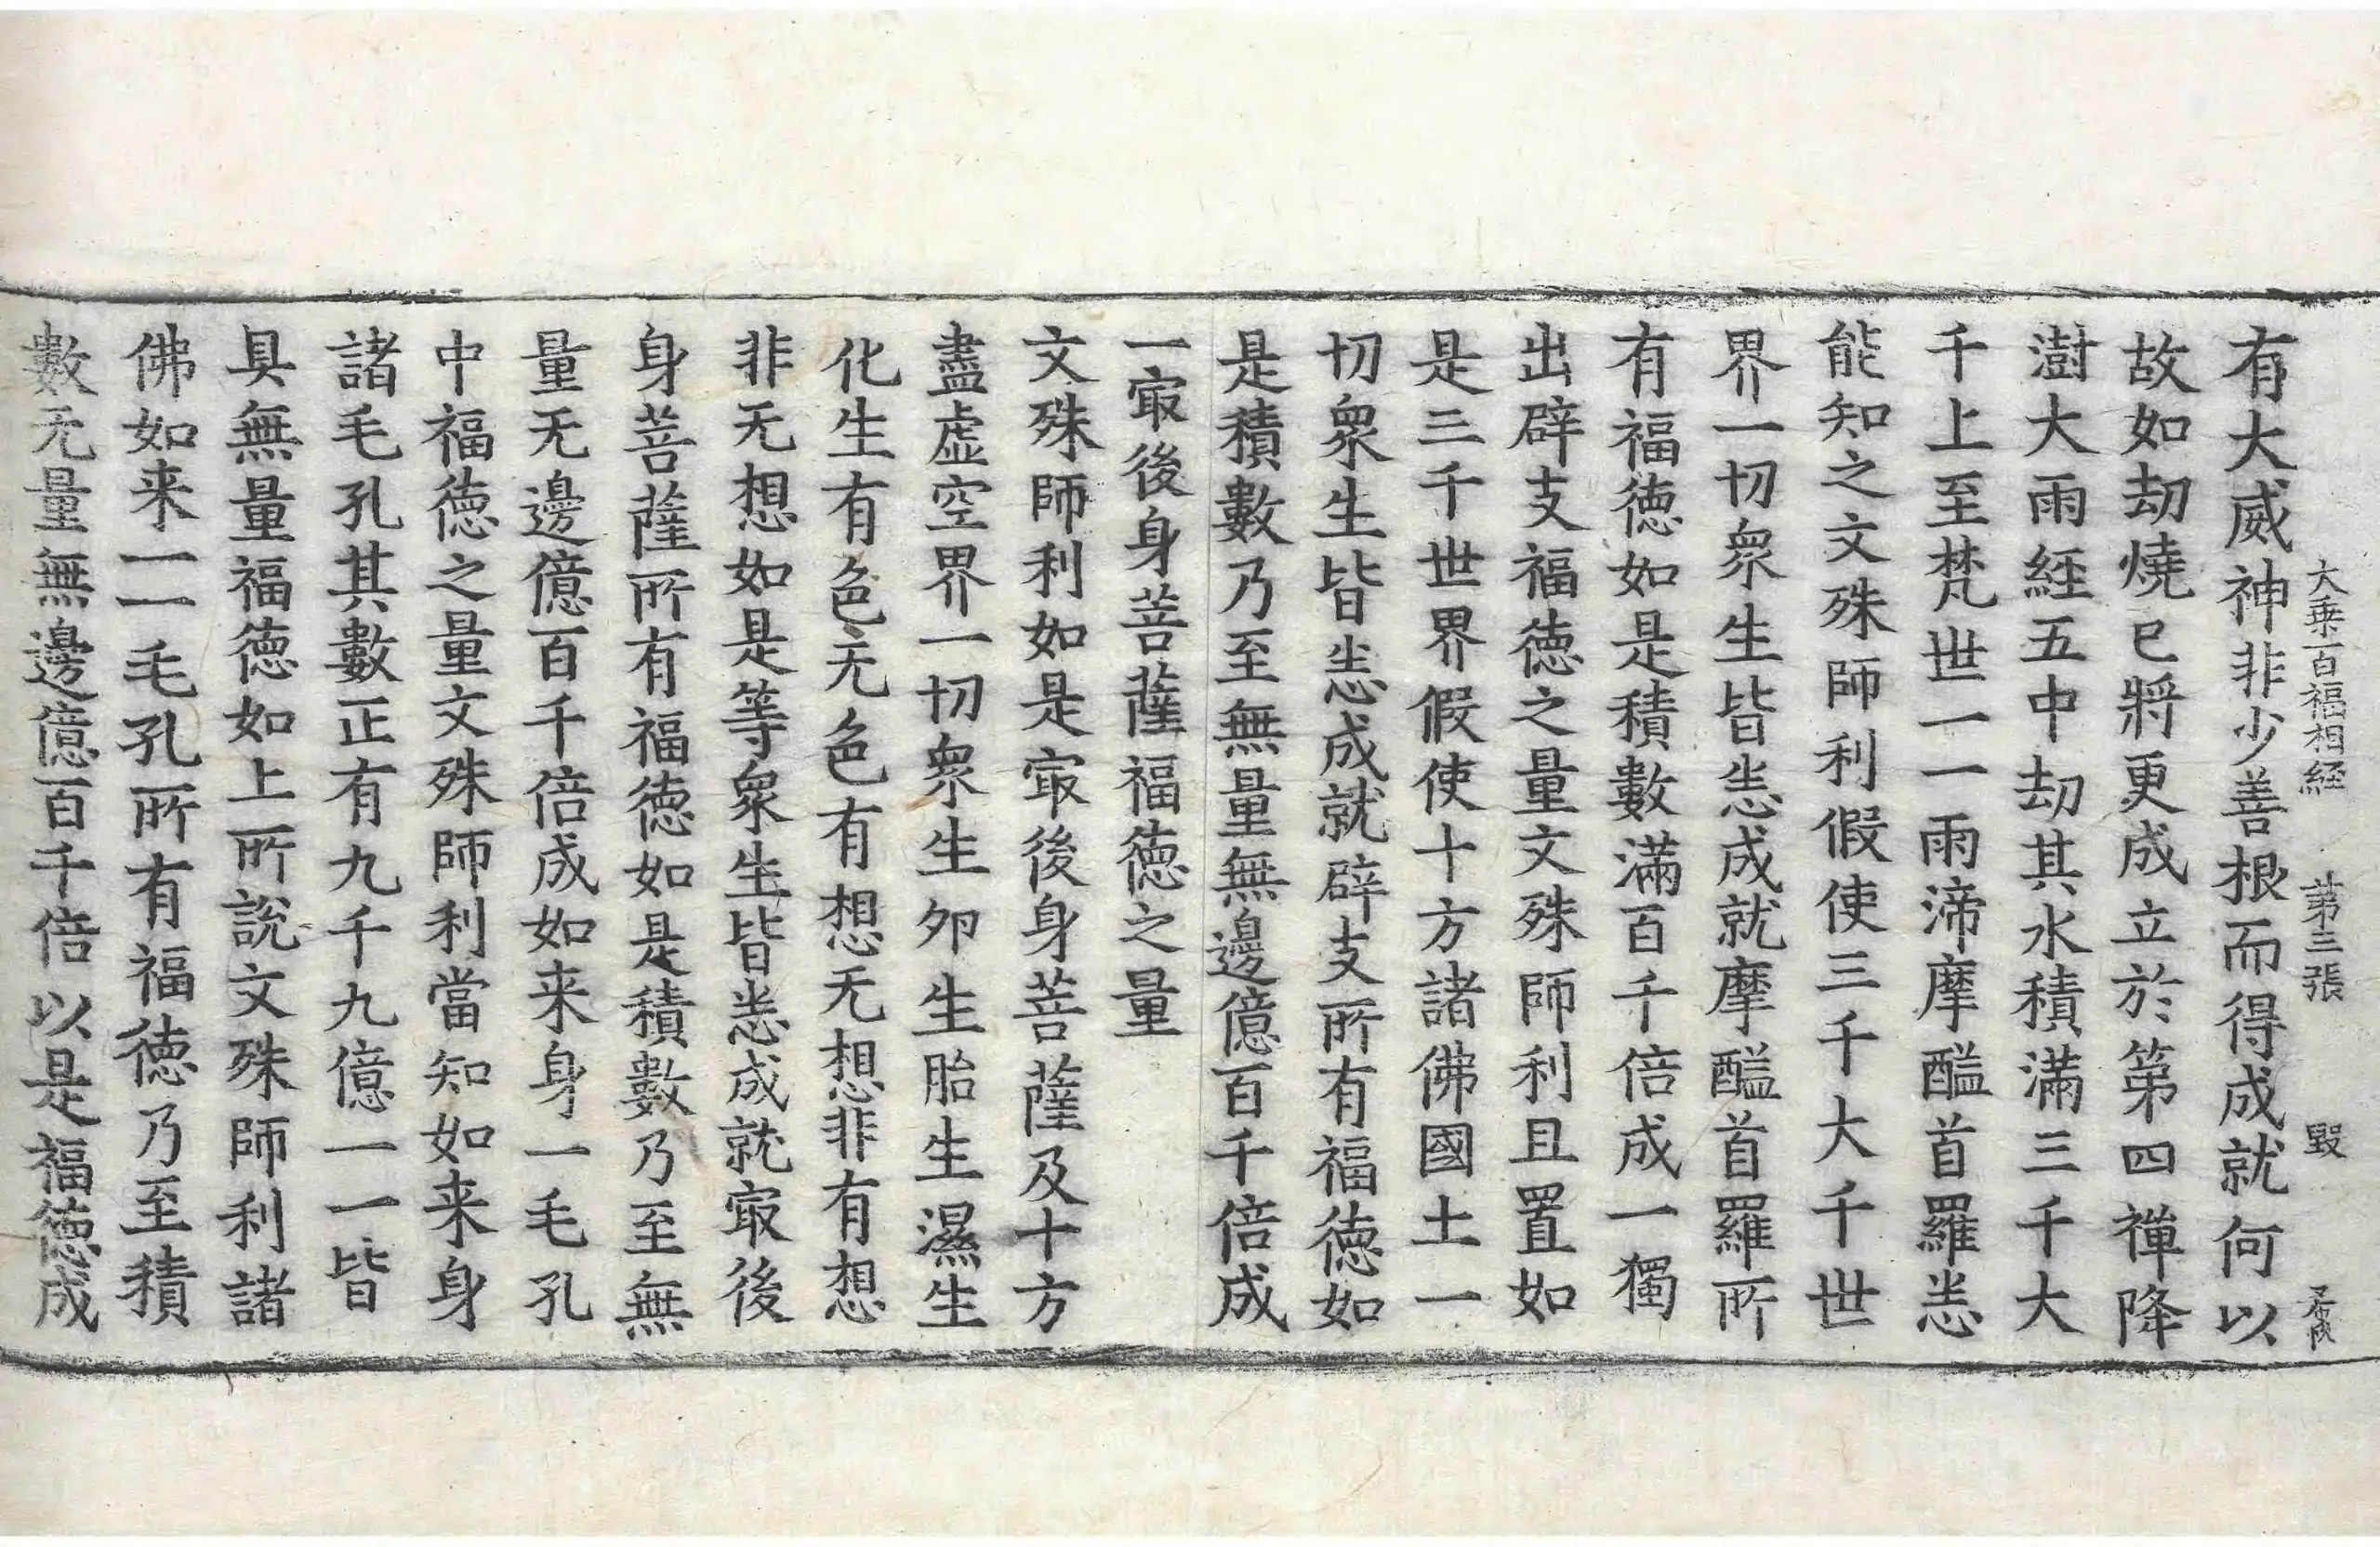 大乗百福相経 第三張 毀
有大威神非少善根而得成就何以
故如劫燒已將更成立於第四禪降
澍大雨経五中劫其水積滿三千大
千上至梵世一一雨渧摩醯首羅悉
能知之文殊師利假使三千大千世
界一切衆生皆悉成就摩醯首羅所
有福徳如是積數滿百千倍成一獨
出辟支福徳之量文殊師利且置如
是三千世界假使十方諸佛國土一
切衆生皆悉成就辟支所有福徳如
是積數乃至無量無邊億百千倍成
一㝡後身菩薩福徳之量
文殊師利如是㝡後身菩薩及十方
盡虚空界一切衆生卵生胎生濕生
化生有色无色有想无想非有想
非无想如是等衆生皆悉成就㝡後
身菩薩所有福徳如是積數乃至無
量无邊億百千倍成如来身一毛孔
中福徳之量文殊師利當知如来身
諸毛孔其數正有九千九億一一皆
具無量福徳如上所說文殊師利諸
佛如来一一毛孔所有福徳乃至積
數无量無邊億百千倍以是福徳成